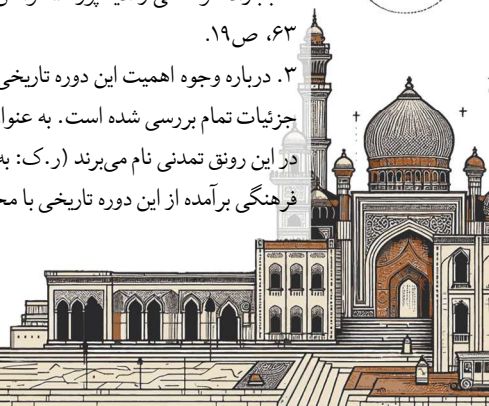 ۶۳، ص۱۹.
۳. درباره وجوه اهمیت این دوره تاریخی
جزئیات تمام بررسی شده است. به عنوا
در این رونق تمدنی نام می‌برند (ر.ک: به
فرهنگی برآمده از این دوره تاریخی با مح